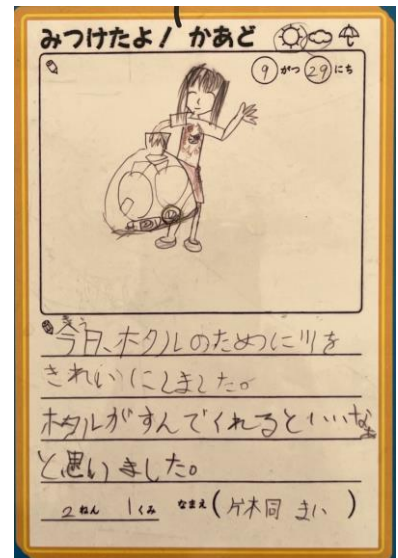 みつけたよ！ かあど
9 がつ 29 にち
今日、ホタルのために川を
きれいにしました。
ホタルがすんでくれるといいなあ
と思いました。
2 ねん 1 くみ なまえ ( まい )